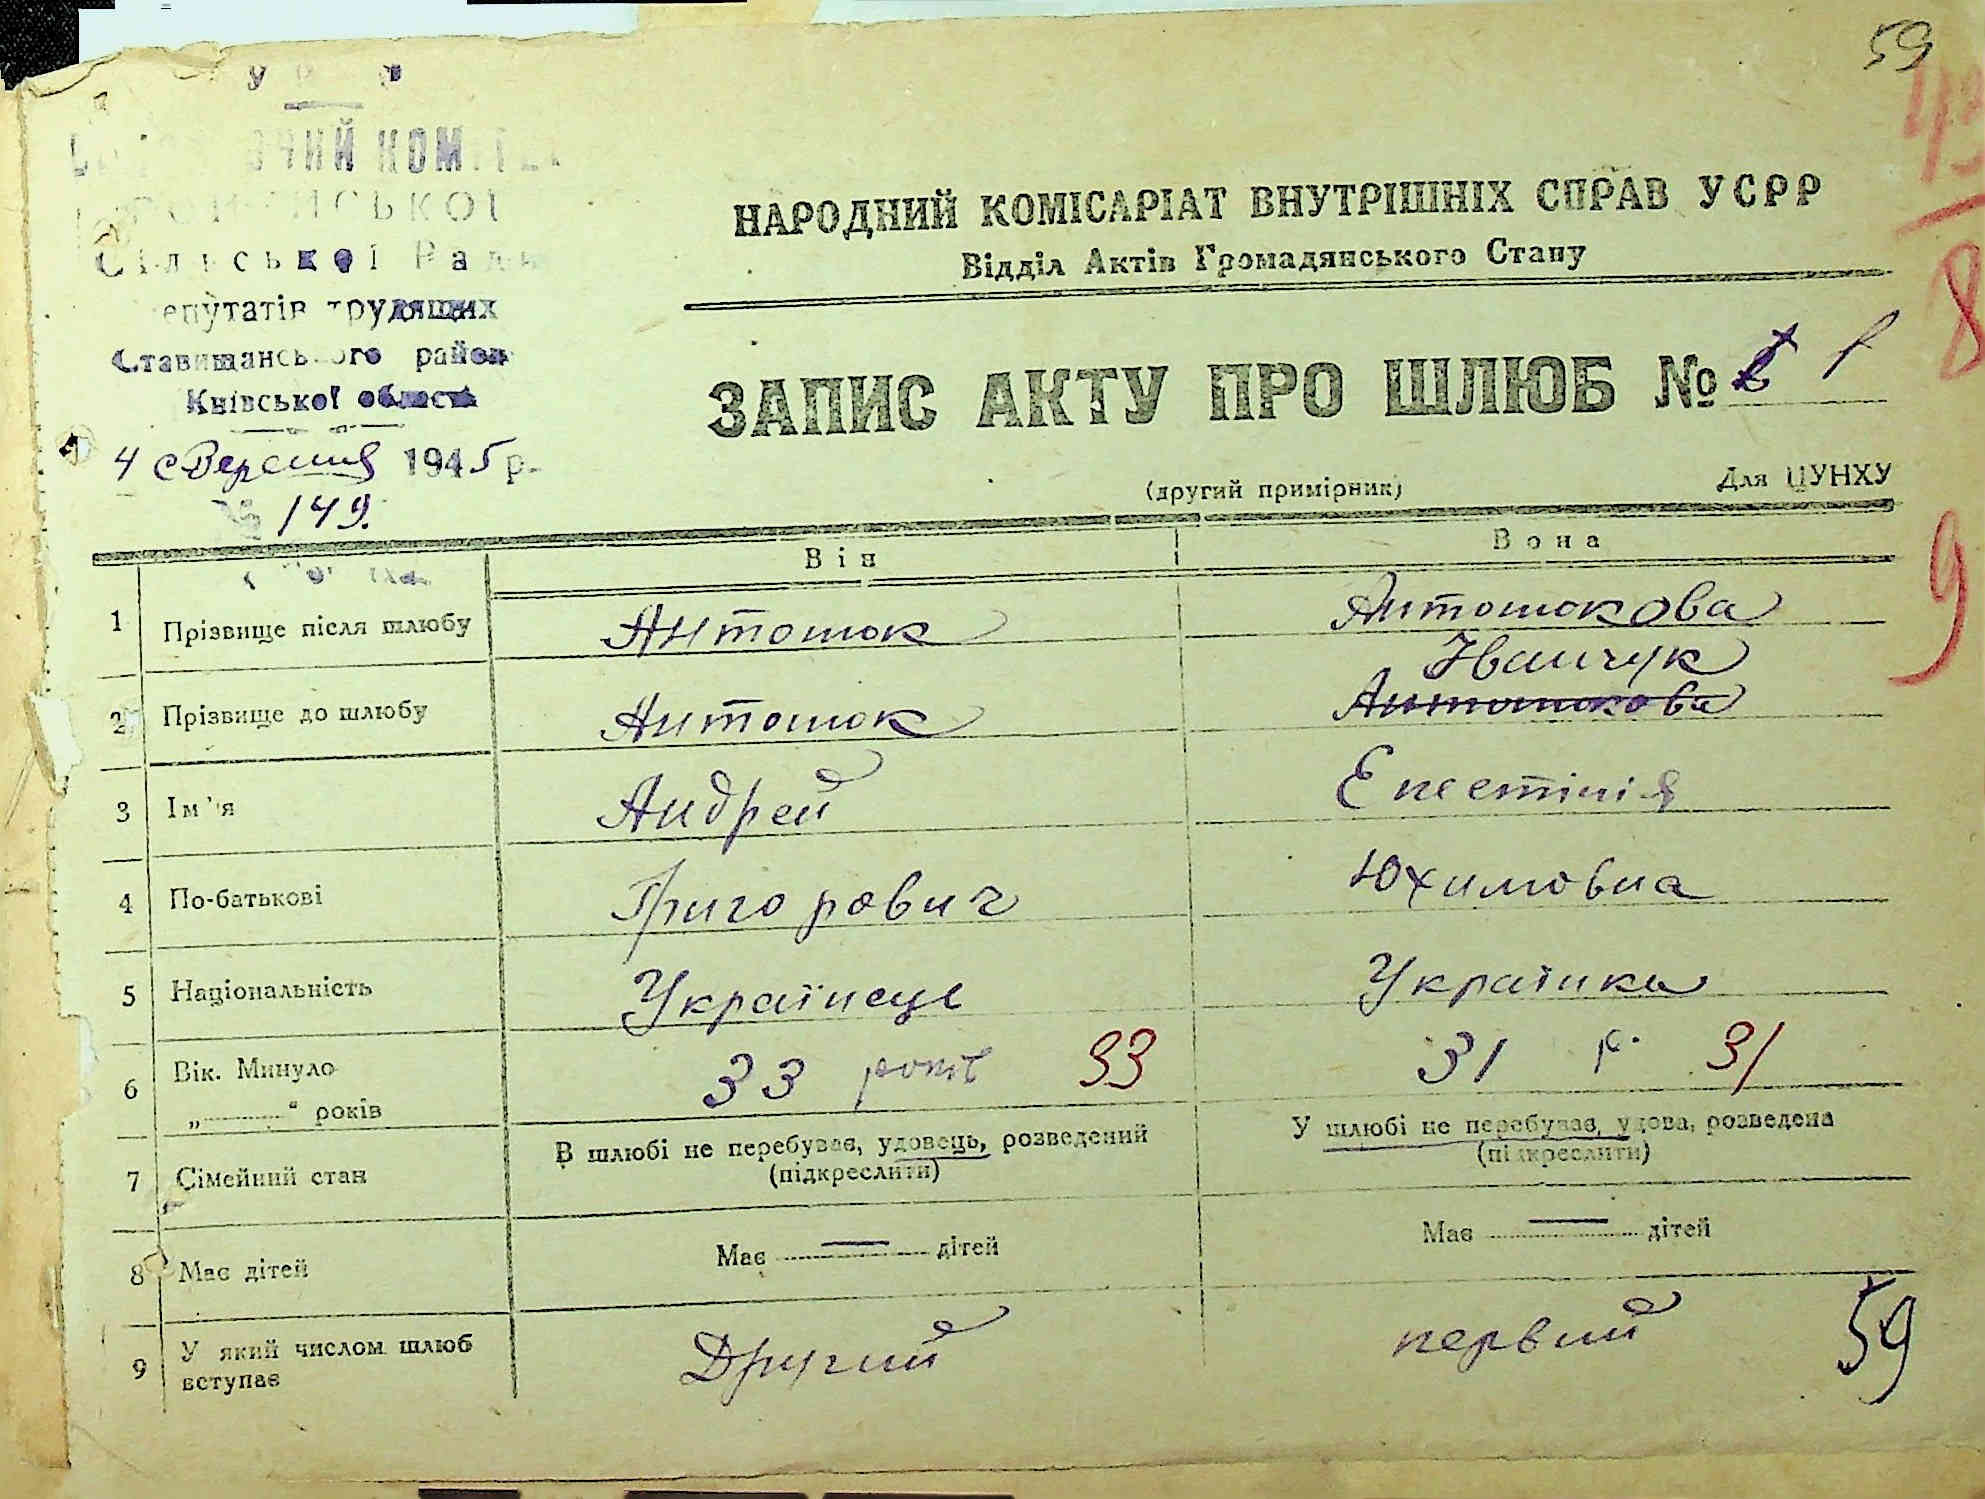 59
УРСР
КОМІТЕТ
Сільської Ради
депутатів трудящих
Ставищанського району
Київської області
4 Вересня 1945 р.
№ 149.
НАРОДНИЙ КОМІСАРІАТ ВНУТРІШНІХ СПРАВ УСРР
Відділ Актів Громадянського Стану
ЗАПИС АКТУ ПРО ШЛЮБ № 1
(другий примірник) Для ЦУНХУ
8
9
Він Вона
1 Прізвище після шлюбу Антонюк Антонюкова
Іванчук
2 Прізвище до шлюбу Антонюк Антонюкова
3 Ім'я Андрей Епестінія
4 По-батькові Григорович Юхимовна
5 Національність Українець Українка
6 Вік. Минуло 33 років 33 31 р. 31
„............“ років
7 Сімейний стан В шлюбі не перебуває, удовець, розведений У шлюбі не перебуває, удова, розведена
(підкреслити) (підкреслити)
8 Має дітей Має — дітей Має — дітей
9 У який числом шлюб вступає Другий первий
59